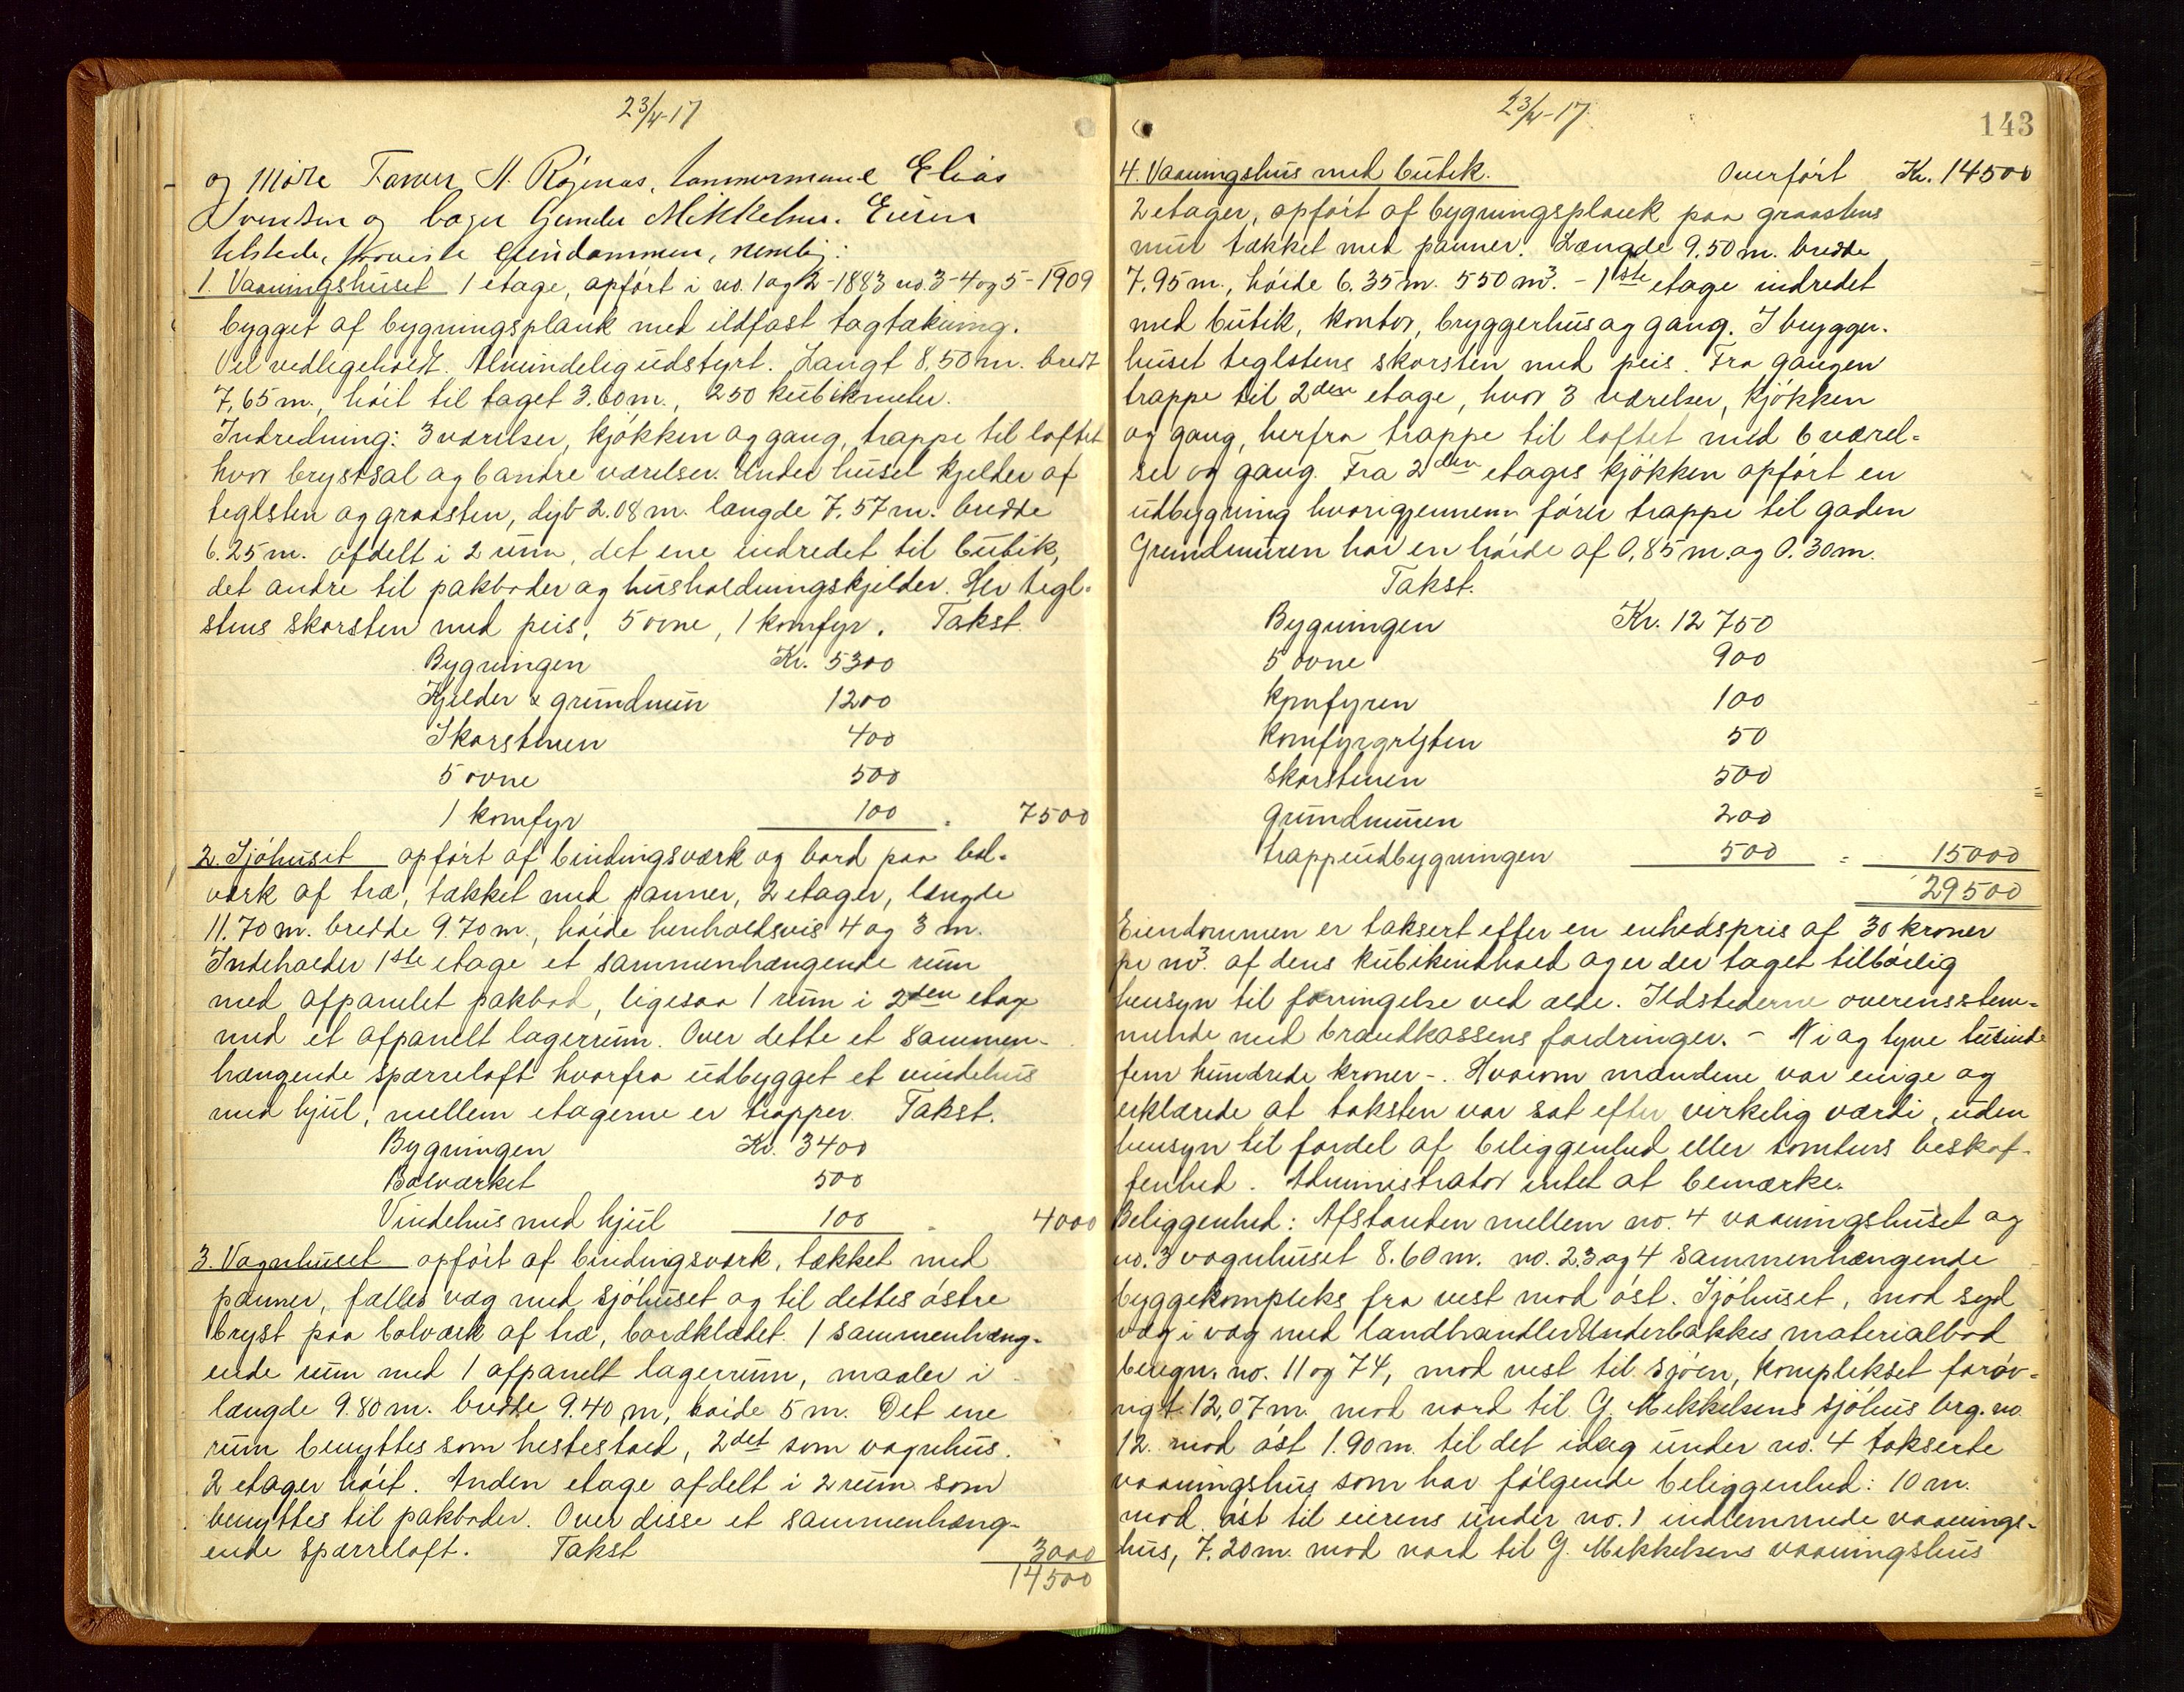 23/4-17
og møtte Farver N. Røgenæs, tømmermand Elias
Svendsen og bager Gunder Mikkelsen. Eieren
tilstede, proviste eiendommen, nemlig:
1. Vaaningshuset 1 etage, opført i no. 1 og 2-1883 no. 3-4 og 5-1909
bygget af bygningsplank med ildfast tagtækning.
Vel vedligeholdt. Almindelig udstyrt. Langt 8,50 m. bredt
7,65 m., høit til taget 3.60 m., 250 kubikmeter.
Indredning: 3 værelser, kjøkken og gang, trappe til loftet
hvor brystsal og 6 andre værelser. Under huset kjelder af
teglsten og graasten, dyb 2.08 m. længde 7.57 m. bredde
6.25 m. afdelt i 2 rum, det ene indredet til butik,
det andre til pakboder og husholdningskjelder. Her tegl-
stens skorsten med peis, 5 ovne, 1 komfyr. Takst
Bygningen Kr. 5300
Kjelder & grundmur 1200
Skorstenen 400
5 ovne 500
1 komfyr 100 = 7500
2. Sjøhuset opført af bindingsværk og bord paa bol-
værk af træ, tækket med panner, 2 etager, længde
11.70 m. bredde 9.70 m., høide henholdsvis 4 og 3 m.
Indeholder 1ste etage et sammenhængende rum
med afpanelet pakbod, ligesaa 1 rum i 2den etage
med et afpanelt lagerrum. Over dette et sammen-
hængende spærreloft hvorfra udbygget et vindehus
med hjul, mellem etagerne er trapper. Takst.
Bygningen Kr. 3400
Bolværket 500
Vindehus med hjul 100 = 4000
3. Vognhuset opført af bindingsværk, tækket med
panner, fælles væg med sjøhuset og til dettes østre
bryst paa bolværk af træ, bordklædet. 1 sammenhæng-
ende rum med 1 afpanelt lagerrum, maaler i
længde 9.80 m. bredde 9.40 m, høide 5 m. Det ene
rum benyttes som hestestald, 2det som vognhus.
2 etager høit. Anden etage afdelt i 2 rum som
benyttes til pakboder. Over disse et sammenhæng-
ende spærreloft. Takst 3000
14500
23/4-17
143
4. Vaaningshus med butik. Overført Kr. 14500
2 etager, opført af bygningsplank paa graastens
mur tækket med panner. Længde 9.50 m. bredde
7.95 m., høide 6.35 m. 550 m³. - 1ste etage indredet
med butik, kontor, bryggerhus og gang. I brygger-
huset teglstens skorsten med peis. Fra gangen
trappe til 2den etage, hvor 3 værelser, kjøkken
og gang, herfra trappe til loftet med 6 værel-
ser og gang. Fra 2den etages kjøkken opført en
udbygning hvorigjennem fører trappe til gaden
Grundmuren har en høide af 0,85 m. og 0.30 m.
Takst.
Bygningen Kr. 12 750
5 ovne 900
komfyren 100
komfyrgryten 50
skorstenen 500
grundmuren 200
trappeudbygningen 500 = 15000
29500
Eiendommen er taksert efter en enhedspris af 30 kroner
pr m³. af dens kubikindhold og er der taget tilbørlig
hensyn til forringelse ved ælde. Ildstederne overensstem-
mende med brandkassens fordringer. - Ni og tyve tusinde
fem hundrede kroner -. Hvorom mændene var enige og
erklærede at taksten var sat efter virkelig værdi, uden
hensyn til fordel af beliggenhed eller tomtens beskaf-
fenhed. Administrator intet at bemærke.
Beliggenhed: Afstanden mellem no. 4 vaaningshuset og
no. 3 vognhuset 8.60 m. no. 2.3 og 4 sammenhængende
byggekompleks fra vest mod øst. Sjøhuset, mod syd
væg i væg med landhandler Underbakkes materialbod
bevgn. no. 11 og 74, mod vest til sjøen, komplekset forøv-
rigt 12,07 m. mod nord til G. Mikkelsens sjøhus brg. no
12. mod øst 1.90 m. til det idag under no. 4 takserte
vaaningshus som har følgende beliggenhed: 10 m.
mod øst til eierens under no. 1 indlemmede vaanings-
hus, 7.20 m. mod nord til G. Mikkelsens vaaningshus